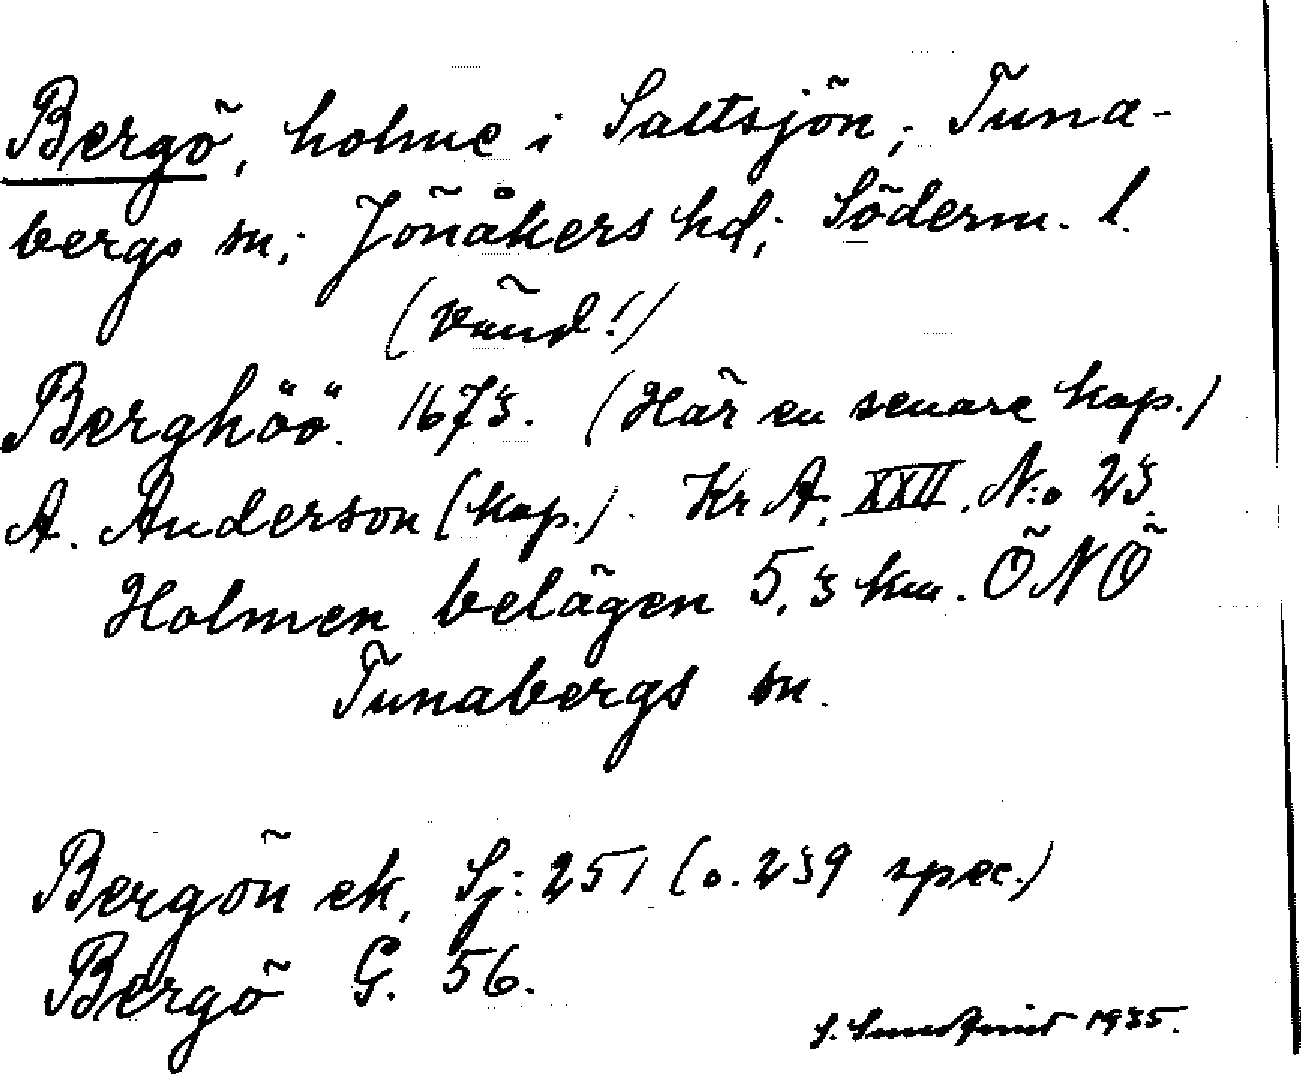 Bergö, holme i Saltsjön; Tuna-
bergs sn; Jönåkers hd; Söderm. l.
(vänd!)
Berghöö. 1673. (Här en senare kop.)
A. Anderson (kop.). Kr A. XXII. N:o 23.
Holmen belägen 5,3 km. ÖNÖ
Tunabergs sn.
Bergön ek. Sj: 251 (o. 239 spec.)
Bergö G. 56.
S. Sundqvist 1935.